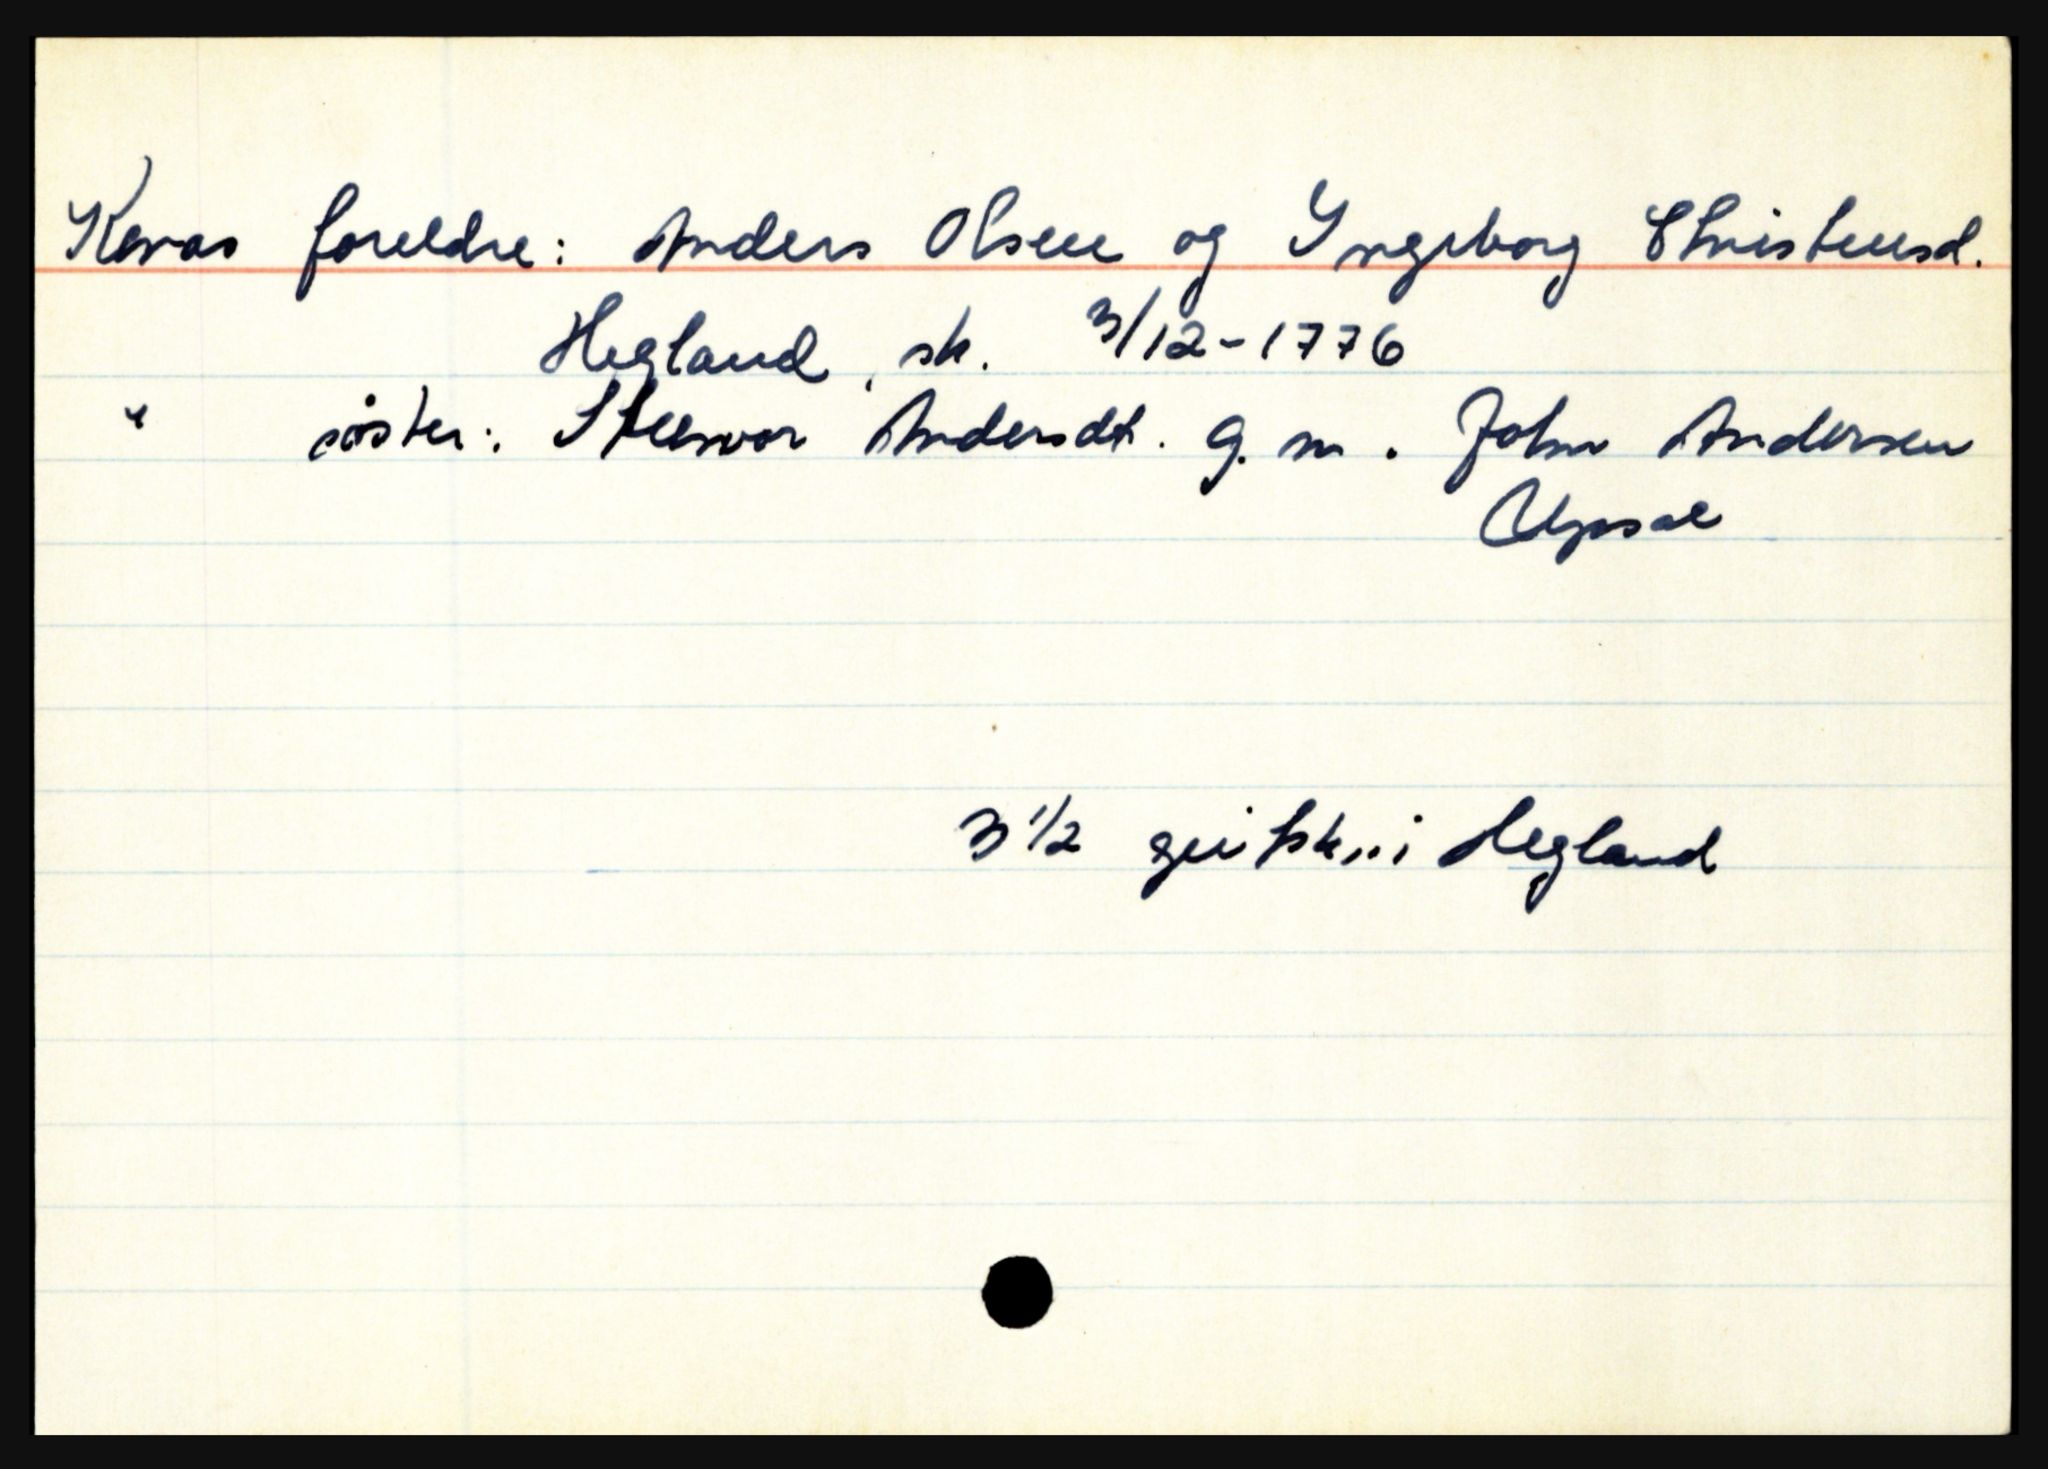 Konas foreldre: Anders Olsen og Yngeborg Christensd.
Hegland, sk. 3/12-1776
" søster: Steenvor Andersdt. g. m. John Andersen
Upsal
3 1/2 geitsk. i Hegland